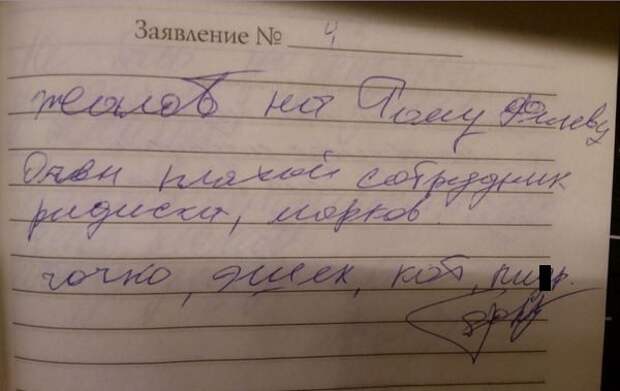 Заявление № 4
жалоб на Тому Филеву
Очен плахой сотрудник
ридиска, морков.
точно, кот,